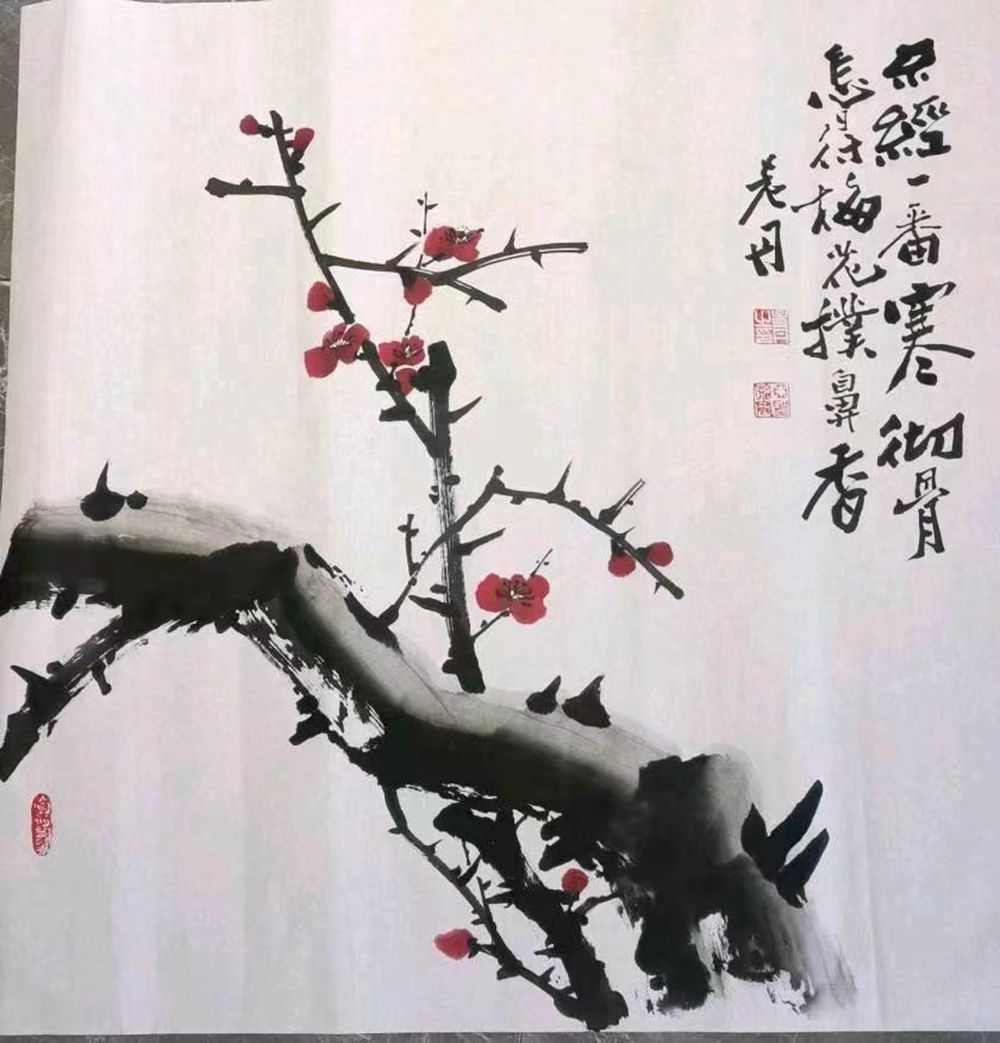 不經一番寒彻骨
怎得梅花撲鼻香
老丹